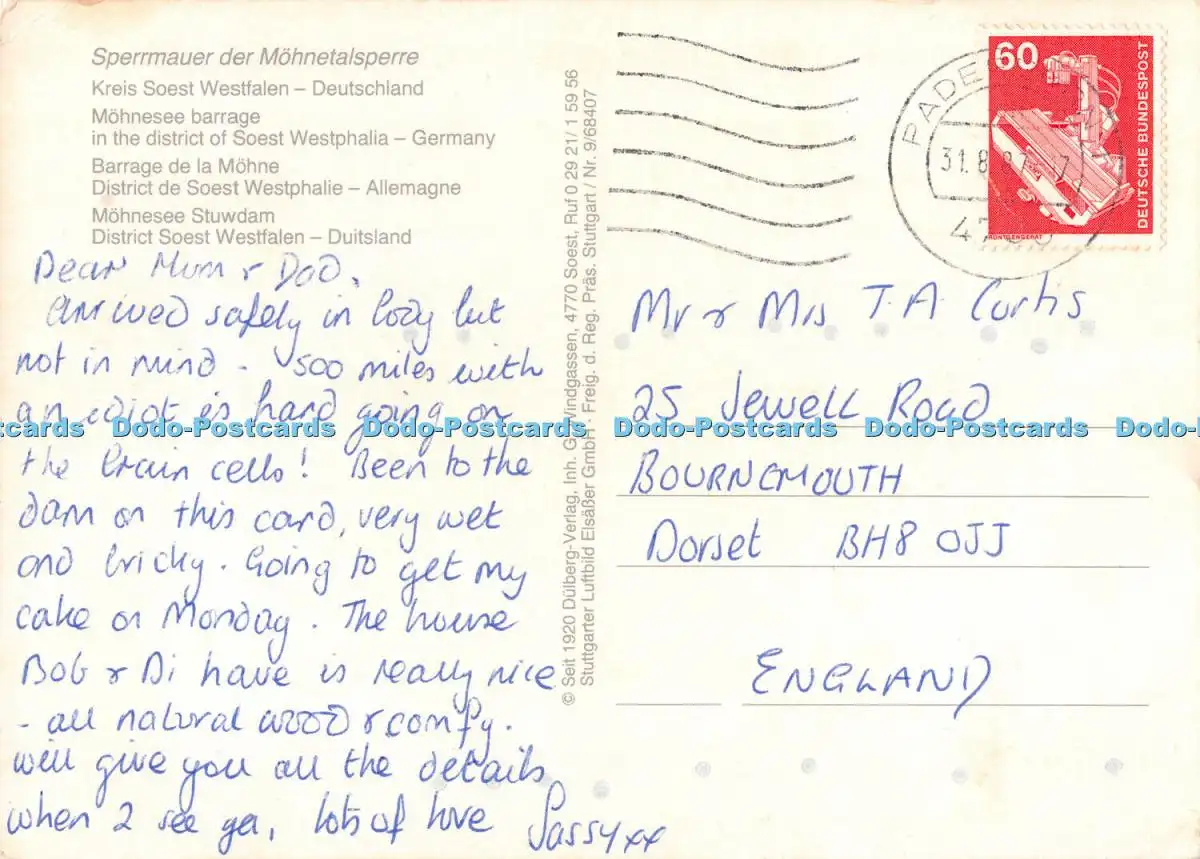 Sperrmauer der Möhnetalsperre
Kreis Soest Westfalen – Deutschland
Möhnesee barrage
in the district of Soest Westphalia – Germany
Barrage de la Möhne
District de Soest Westphalie – Allemagne
Möhnesee Stuwdam
District Soest Westfalen – Duitsland
Dear Mum & Dad,
Arrived safely in body but
not in mind - 500 miles with
an idiot is hard going on
the brain cells! Been to the
dam on this card, very wet
and bricky. Going to get my
cake on Monday. The house
Bob & Di have is really nice
- all natural wood & comfy.
Will give you all the details
when I see ya, lots of love Sassy xx
© Seit 1920 Dülberg-Verlag, Inh. G. Windgassen, 4770 Soest, Ruf 0 29 21/ 1 59 56
Stuttgarter Luftbild Elsäßer GmbH · Freig. d. Reg. Präs. Stuttgart / Nr. 9/68407
60
DEUTSCHE BUNDESPOST
RÖNTGENGERÄT
31.8.87
Mr & Mrs T.A. Curtis
25 Jewell Road
BOURNEMOUTH
Dorset BH8 0JJ
ENGLAND
Dodo-Postcards Dodo-Postcards Dodo-Postcards Dodo-Postcards